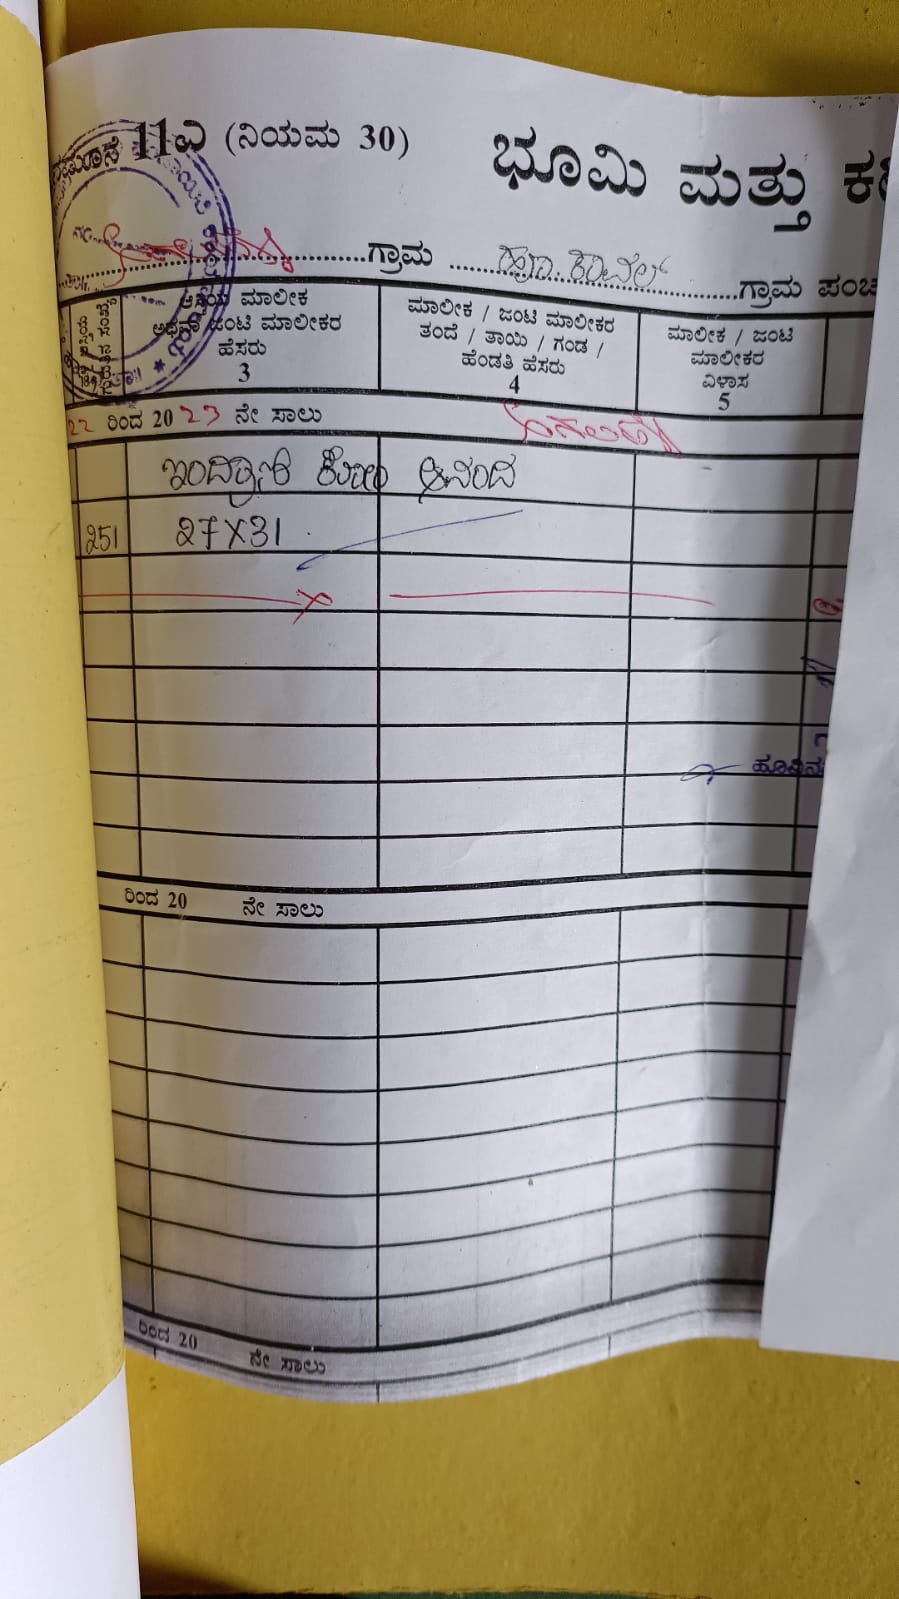 ನಮೂನೆ 11ಎ (ನಿಯಮ 30) ಭೂಮಿ ಮತ್ತು
ಗ್ರಾಮ ಗ್ರಾಮ ಪಂಚ
ಆಸ್ತಿಯ ಮಾಲೀಕ
ಅಥವಾ ಜಂಟಿ ಮಾಲೀಕರ
ಹೆಸರು
3
ಮಾಲೀಕ / ಜಂಟಿ ಮಾಲೀಕರ
ತಂದೆ / ತಾಯಿ / ಗಂಡ /
ಹೆಂಡತಿ ಹೆಸರು
4
ಮಾಲೀಕ / ಜಂಟಿ
ಮಾಲೀಕರ
ವಿಳಾಸ
5
22 ರಿಂದ 2023 ನೇ ಸಾಲು
ಆನಂದ
251 27X31
ಹೂವಿನ
ರಿಂದ 20 ನೇ ಸಾಲು
ರಿಂದ 20 ನೇ ಸಾಲು